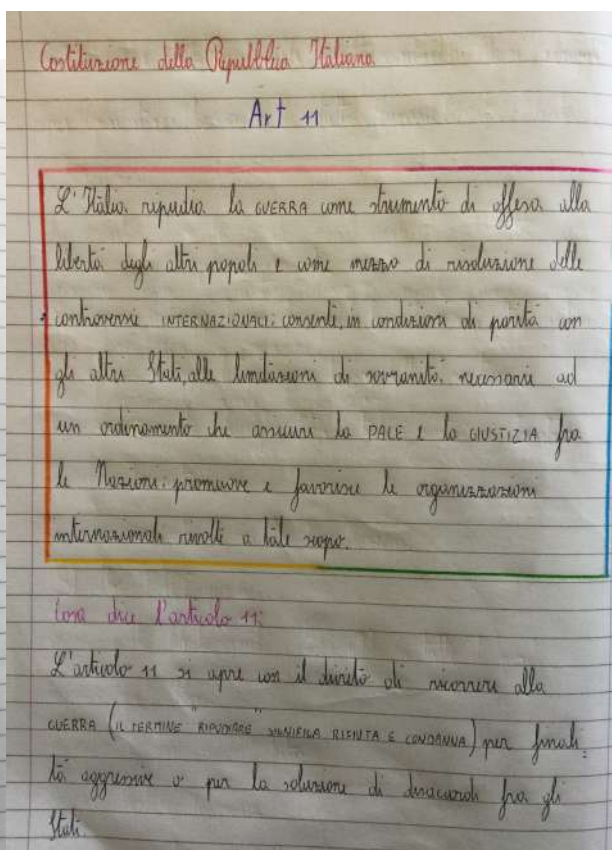 Costituzione della Repubblica Italiana
Art 11
L'Italia ripudia la GUERRA come strumento di offesa alla
libertà degli altri popoli e come mezzo di risoluzione delle
controversie INTERNAZIONALI; consente, in condizioni di parità con
gli altri Stati, alle limitazioni di sovranità necessarie ad
un ordinamento che assicuri la PACE e la GIUSTIZIA fra
le Nazioni; promuove e favorisce le organizzazioni
internazionali rivolte a tale scopo.
Cosa dice l'articolo 11:
L'articolo 11 si apre con il divieto di ricorrere alla
GUERRA (IL TERMINE "RIPUDIARE" SIGNIFICA RIFIUTA E CONDANNA) per finali=
tà aggressive o per la soluzione di disaccordi fra gli
Stati.